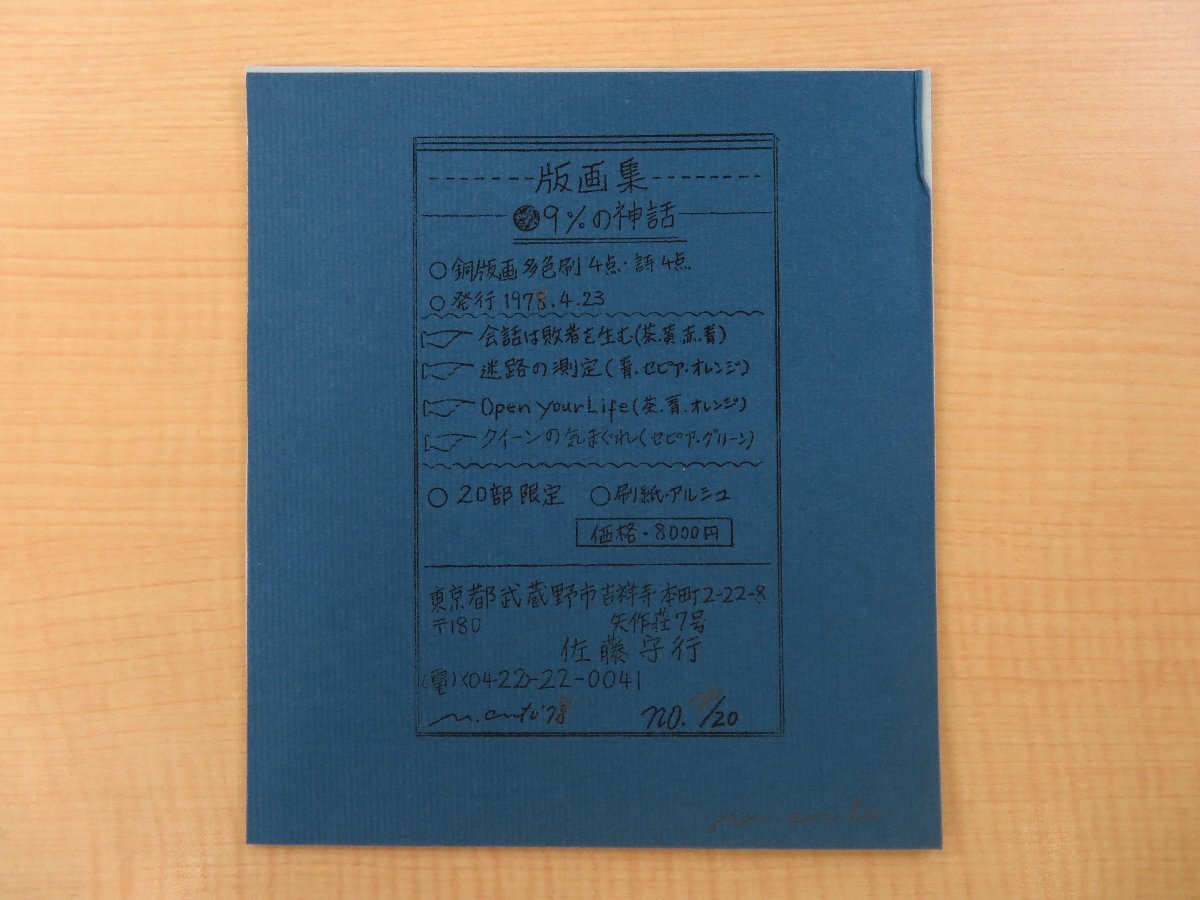 版画集
9%の神話
○銅版画多色刷4点・詩4点
○発行1978.4.23
会話は敗者を生む(茶.黄.赤.青)
迷路の測定(青.セピア.オレンジ)
Open your Life(茶.青.オレンジ)
クイーンの気まぐれ(セピア.グリーン)
○20部限定 ○刷紙・アルシュ
価格・8000円
東京都武蔵野市吉祥寺本町2-22-8
〒180 矢作荘7号
佐藤守行
(電)<0422>-22-0041
'78 NO. /20